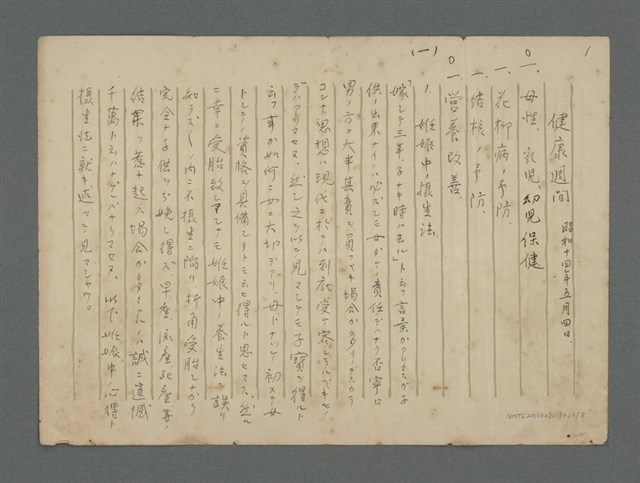 1
健康週間 昭和十四年五月四日、
一、母性、乳児、幼児保健
一、花柳病ノ予防、
一、結核ノ予防、
一、営養改善、
(一)
1. 妊娠中ノ摂生法、
「嫁シテ三年、子ナキ時ハ去ル」ト云フ言葉ガアリマスガ子
供ノ出来ナイノハ必ズシモ女ダケノ責任デハナク否寧ロ
男ノ方ニ大半其責ヲ負フベキ場合ガ多イノデスカラ
コンナ思想ハ現代ニ於テハ到底受ケ容レラルベキモノ
デハアリマセヌ、然シ之ヲ以テ見マシテモ子宝ヲ得ルト
云フ事ガ如何ニ女ニ大切デアリ、母トナツテ初メテ女
トシテノ資格ガ具備シタトモ云ヒ得ルト思ヒマス、然ル
ニ幸ニ受胎致シマシテモ妊娠中ノ養生法ヲ誤リ
知ラズ〱ノ内ニ不摂生ニ陥リ、折角受胎シナガラ
完全ナ子供ヲ分娩シ得ズ早産、流産、死産等ノ
結果ヲ惹キ起ス場合ガ多々アルノハ誠ニ遺憾
千萬ト云ハナケレバナリマセヌ、以下妊娠中ノ心得ト
摂生法ニ就キ述ベテ見マシヤウ。